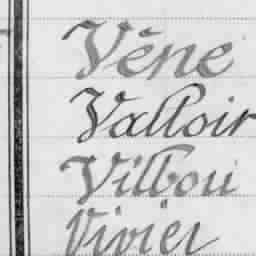 Vène
Valloir
Villbou
Vivier